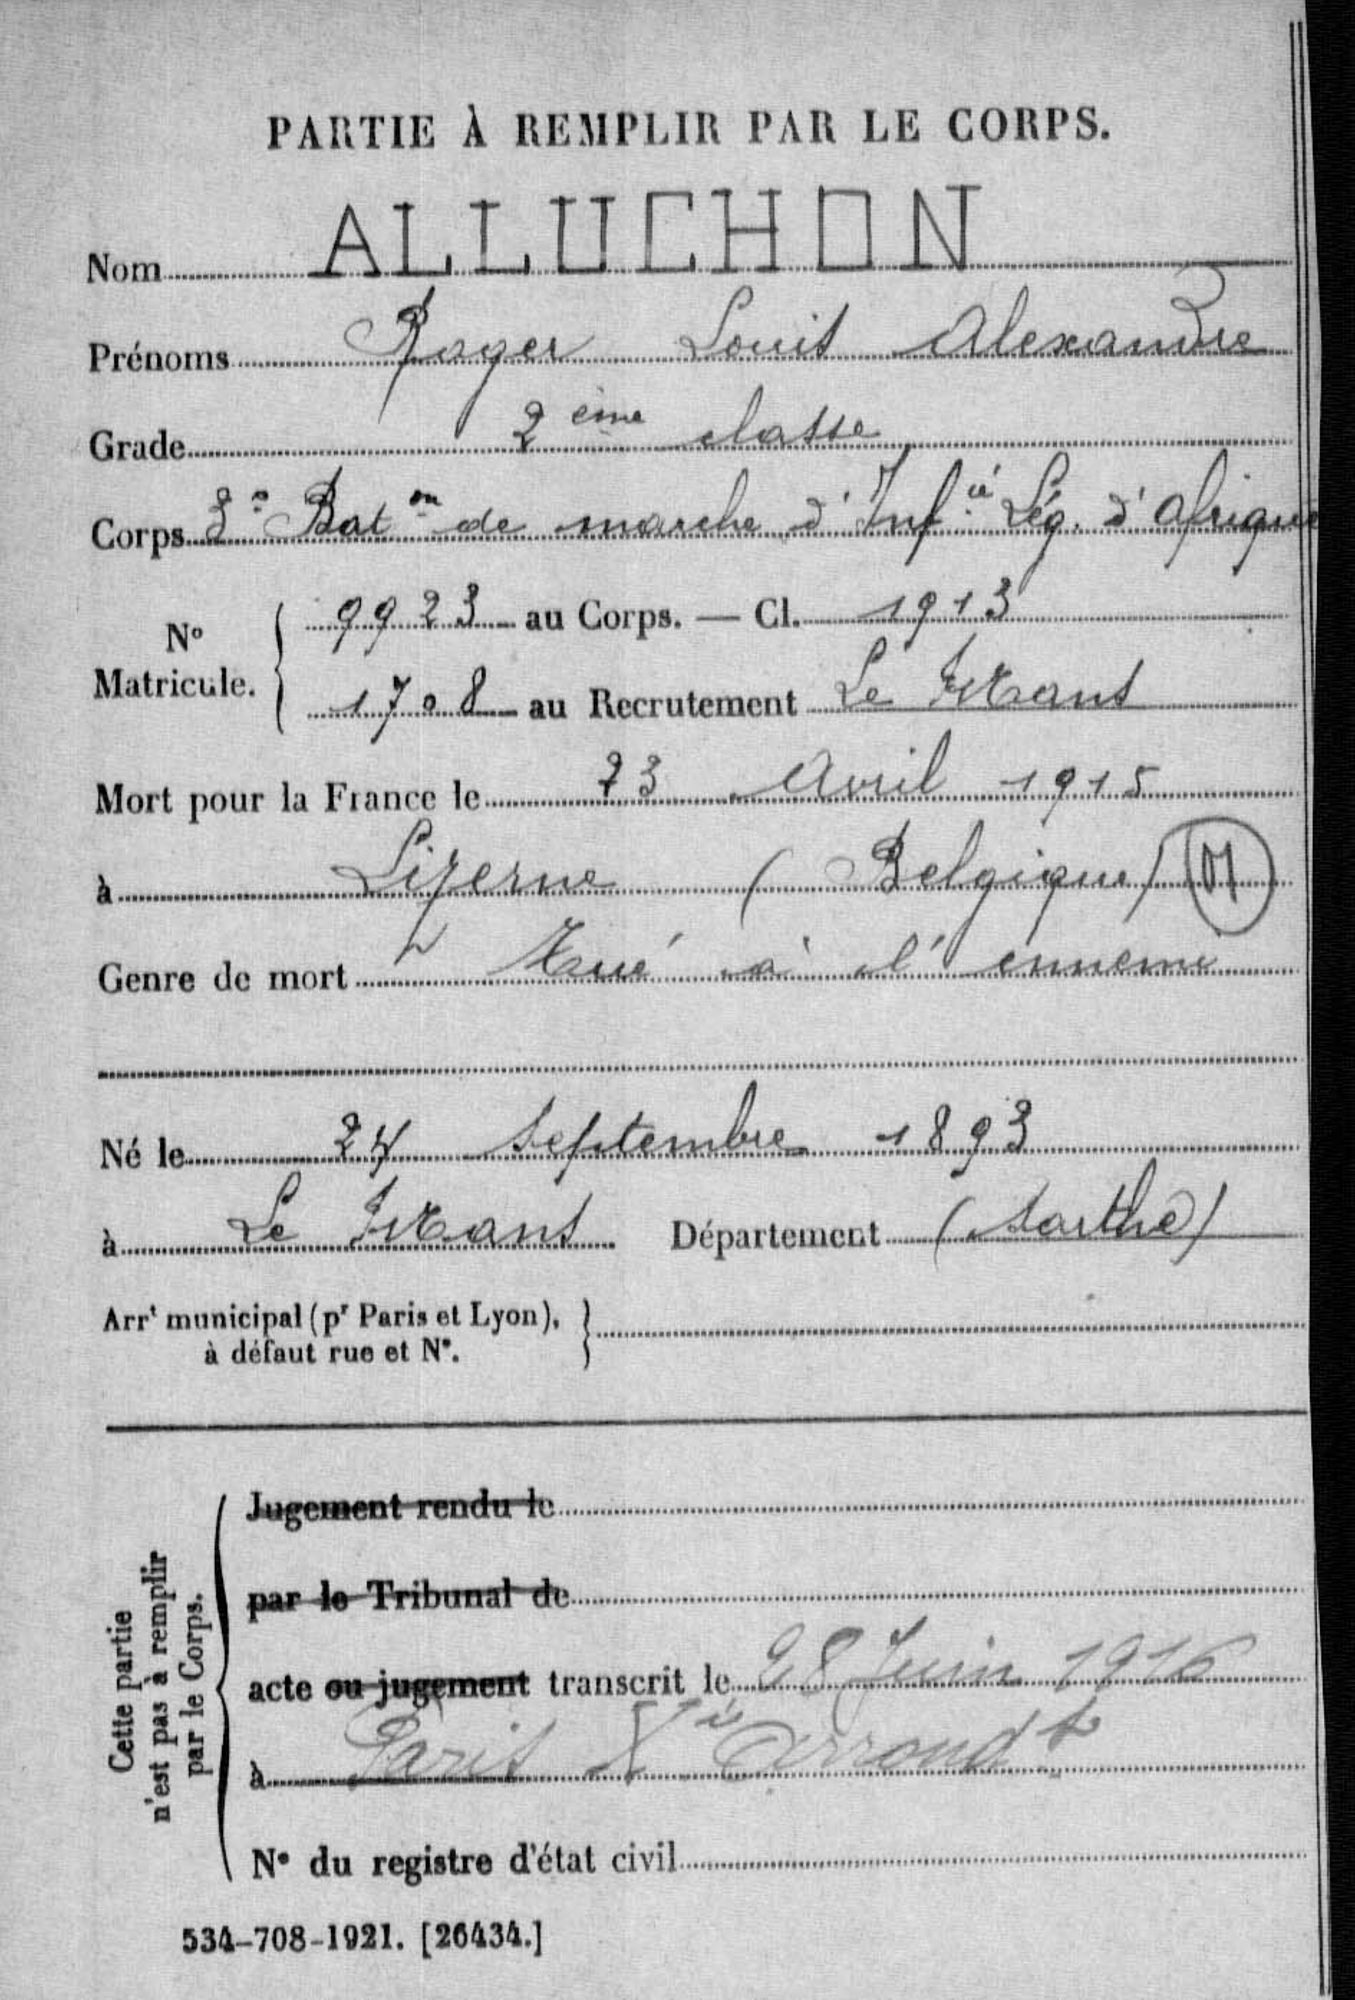 PARTIE À REMPLIR PAR LE CORPS.
Nom ALLUCHON
Prénoms Roger Louis Alexandre
Grade 2ème classe
Corps 3e Baton de marche d'Infie Lég. d'Afrique
No Matricule. 9923 au Corps. — Cl. 1913
1708 au Recrutement Le Mans
Mort pour la France le 23 Avril 1915
à Lizerne (Belgique)
Genre de mort Tué à l'ennemi
Né le 24 Septembre 1893
à Le Mans Département (Sarthe)
Arrt municipal (pr Paris et Lyon),
à défaut rue et N°.
Cette partie
n'est pas à remplir
par le Corps.
Jugement rendu le
par le Tribunal de
acte ou jugement transcrit le 28 Juin 1916
à Paris Xe Arrondt
N° du registre d'état civil
534-708-1921. [26434.]